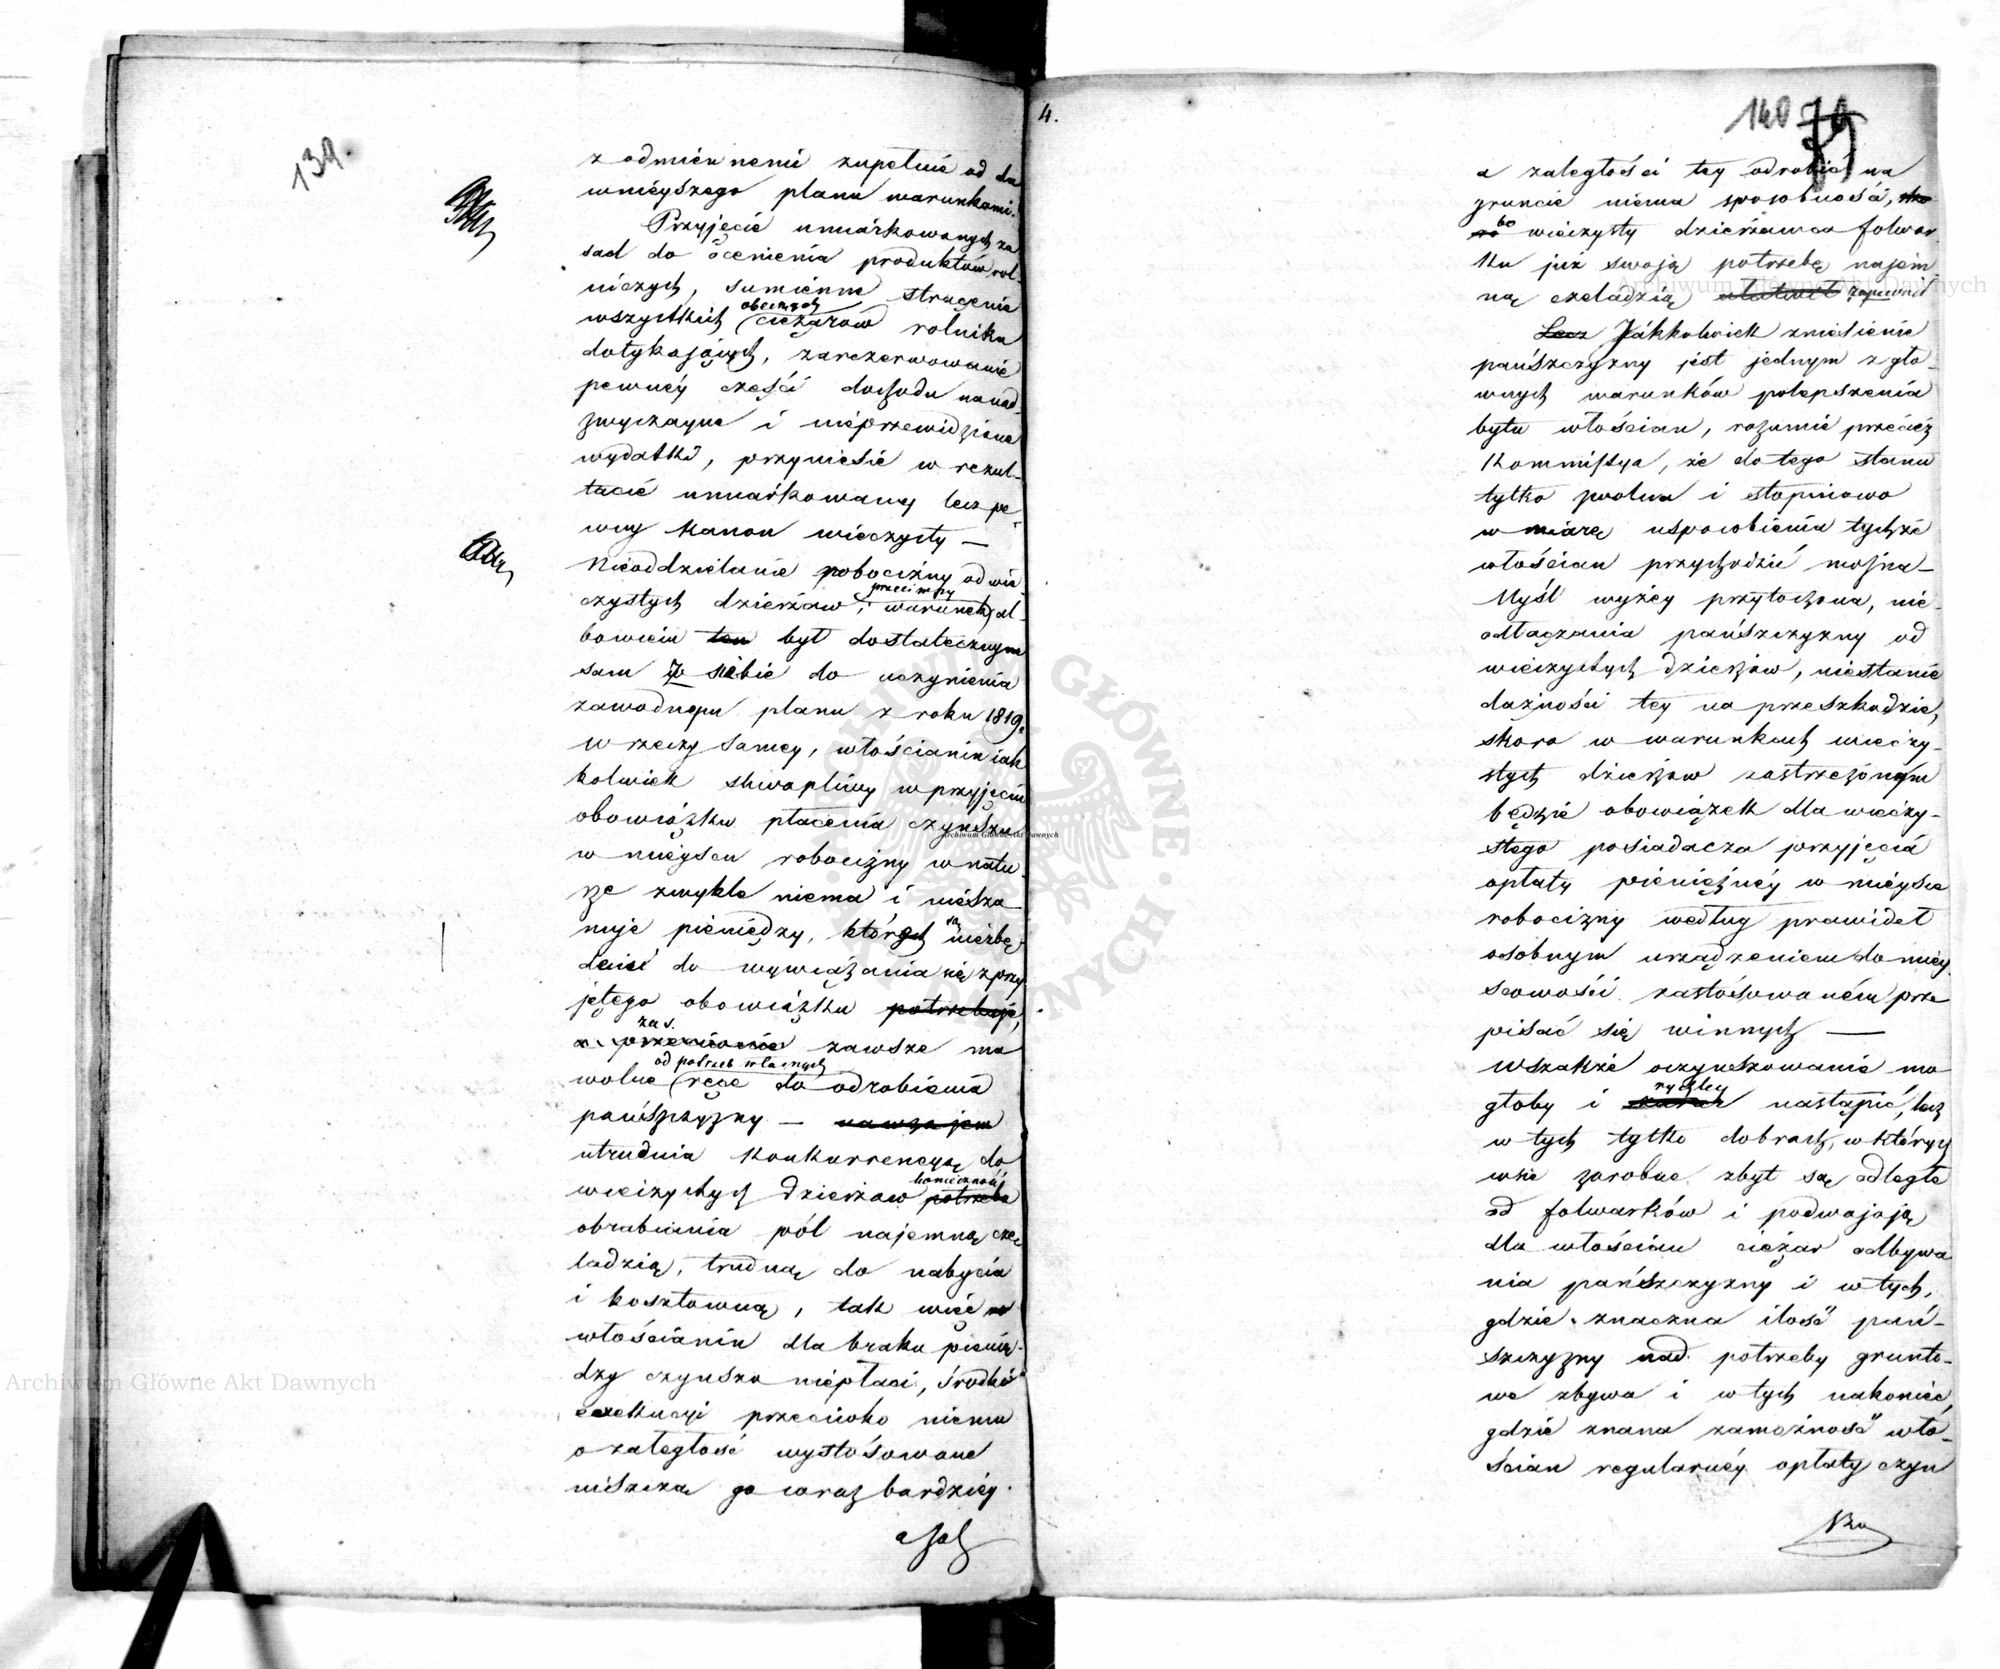 139.
z odmiennemi zupełnie od da
wnieyszego planu warunkami.
Przyjęcie umiarkowanych za
sad do ocenienia produktów rol-
niczych, sumienne strącenie
obecnych
wszystkich ciężarów rolnika
dotykających, zarezerwowanie
pewney części dochodu na nad-
zwyczayne i nieprzewidziane
wydatki, przyniesie w rezul-
tacie umiarkowany lecz pe-
wny Kanon wieczysty —
Nieoddzielanie pobocizny od wie
czystych dzierżaw; warunek al-
bowiem ten był dostatecznym
sam z siebie do uczynienia
zawodnym planu z roku 1819.
W rzeczy samey, włościanin iak
kolwiek skwapliwy w przyjęciu
obowiązku płacenia czynszu
w mieyscu robocizny w natu-
rze zwykle niema i niesza-
są
nuje pieniędzy, których niezbę
dnie do wywiązania się z przy
jętego obowiązku potrzebuje,
zaś
zawsze ma
od potrzeb własnych
wolne ręce do odrobienia
pańszczyzny — nawzajem
utrudnia Konkurrencyą do
konieczność
wieczystych dzierżaw potrzeba
obrabiania pól najemną cze
ladzią, trudną do nabycia
i kosztowną, tak więc
włościanin dla braku pienię-
dzy czynszu niepłaci, środki
exekucyi przeciwko niemu
o zaległość wystosowane
niszczą go coraz bardziéy.
a zal
4.
140 79
a zaległości tey odrobić na
gruncie niema sposobności,
bo
wieczysty dzierżawca folwar-
ku już swoją potrzebę najem
ną czeladzią ułatwił zapewnił
Lecz Jakkolwiek zniesienie
pańszczyzny jest jednym z głó-
wnych warunków polepszenia
bytu włościan, rozumie przecież
Kommissya, że do tego stanu
tylko zwolna i stopniowo
w miarę usposobienia tychże
włościan przychodzić można —
Myśl wyżey przytoczona, nie-
odłączania pańszczyzny od
wieczystych dzierżaw, niestanie
dążności tey na przeszkodzie,
skoro w warunkach wieczy-
stych dzierżaw zastrzeżonym
będzie obowiązek dla wieczy-
stego posiadacza przyjęcia
opłaty pieniężnéy w mieysce
robocizny według prawideł
osobnym urządzeniem do miey
scowości zastosowaném prze
pisać się winnych —
Wszakże oczynszowanie mo
rychley
głoby i nastąpić, lecz
w tych tylko dobrach, w których
wsie zarobne zbyt są odległe
od folwarków i podwajają
dla włościan ciężar odbywa
nia pańszczyzny i w tych,
gdzie znaczna ilość pań-
szczyzny nad potrzeby grunto-
we zbywa i w tych nakoniec,
gdzie znana zamożność wło-
ścian regularnéy opłaty czyn